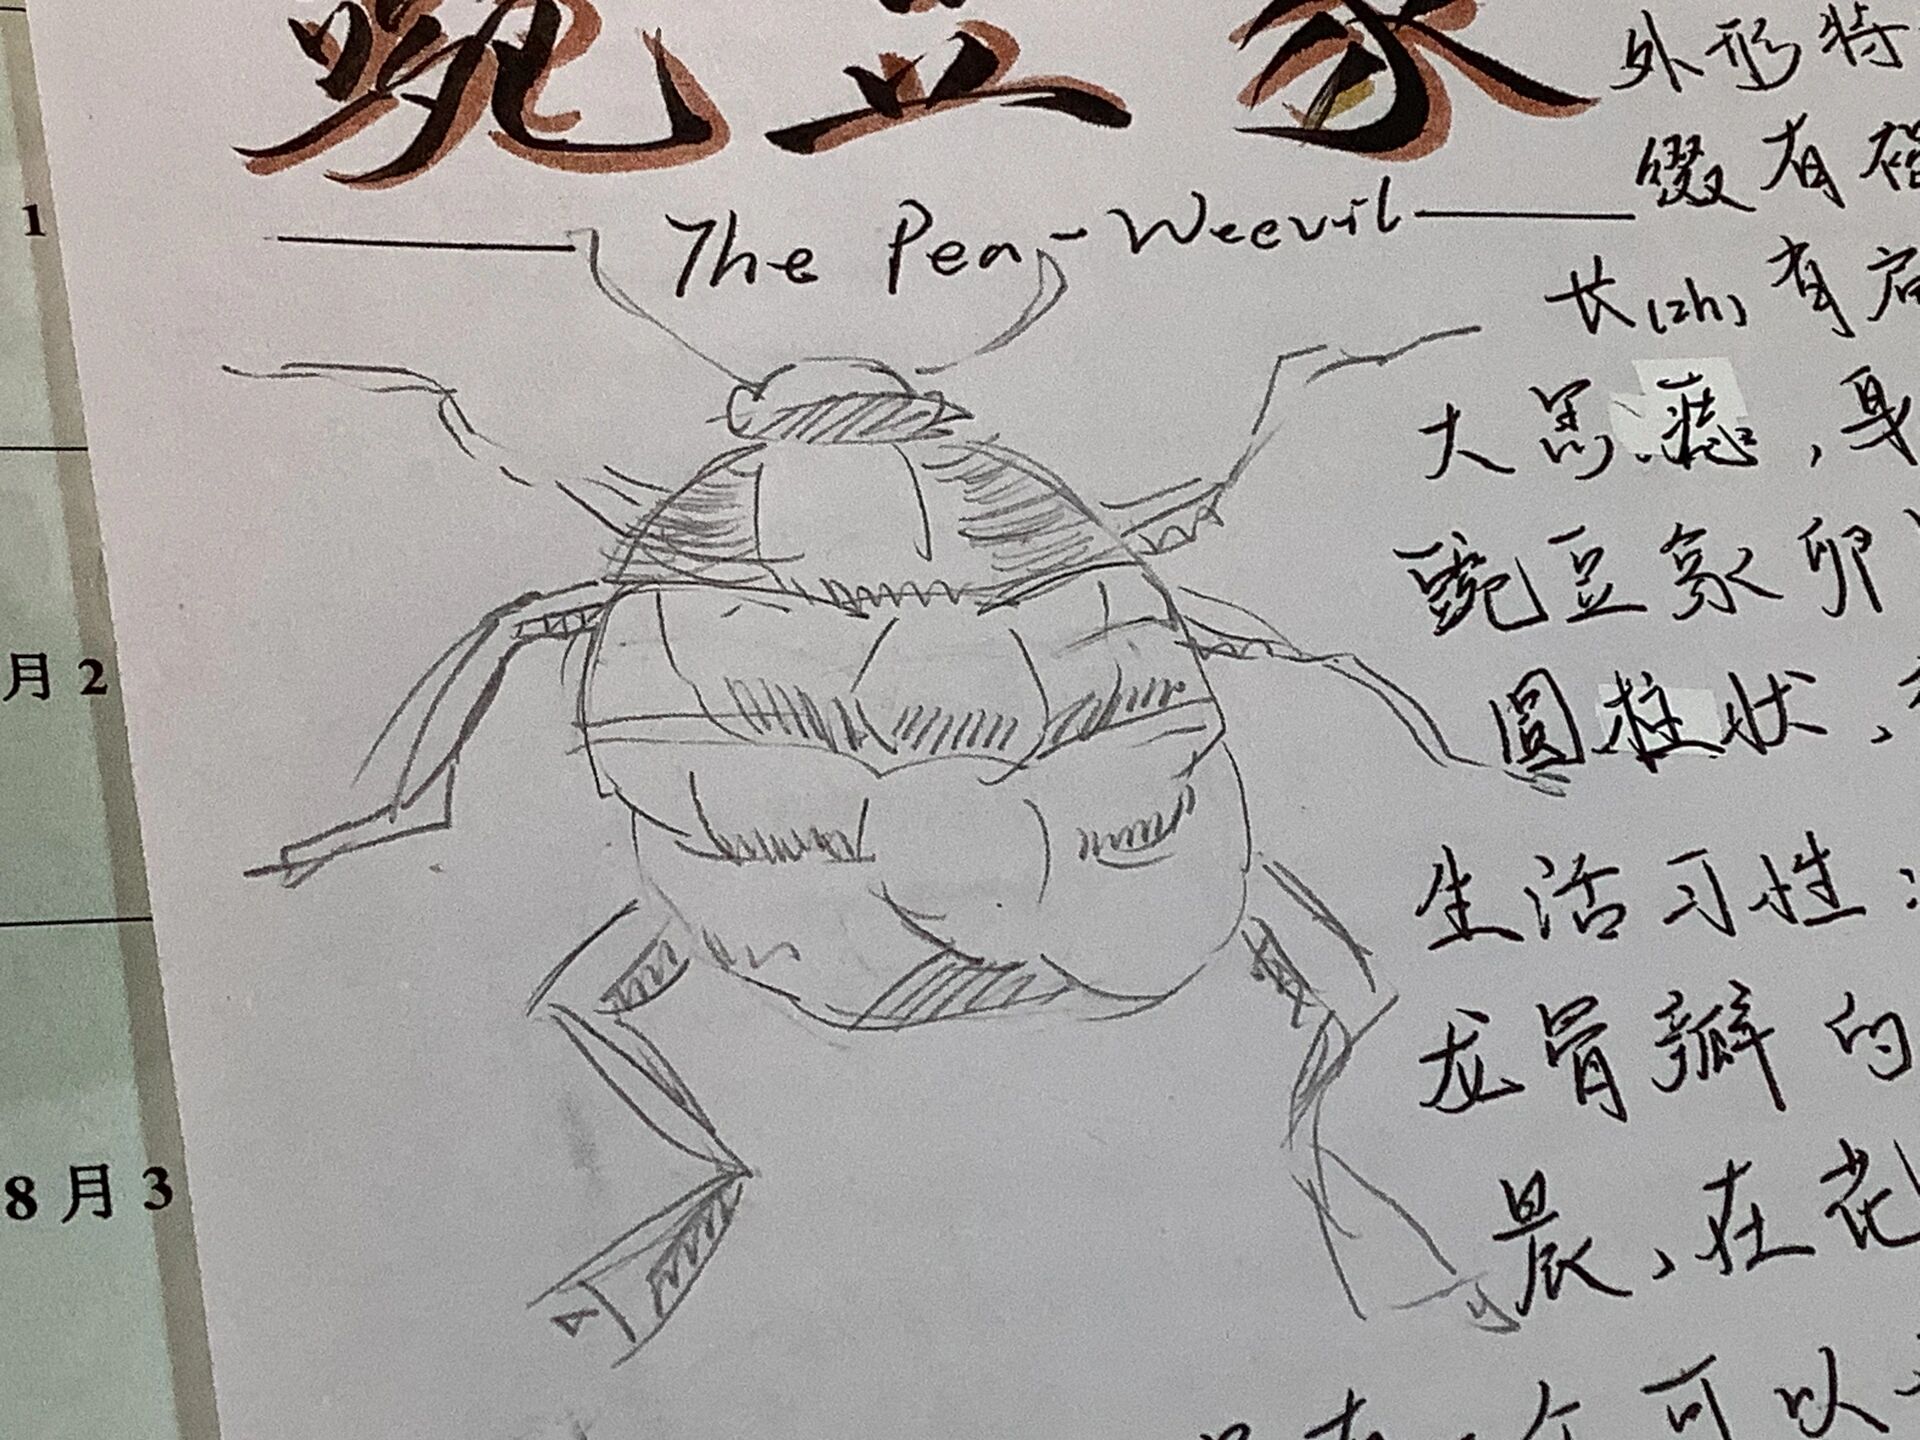 豌豆象
The Pea-Weevil
外形特
缀有褐
长(zh)有
大黑痣,身
豌豆象卵
圆柱状,
生活习性:
龙骨瓣的
晨,在花
个可以
1
月2
8月3